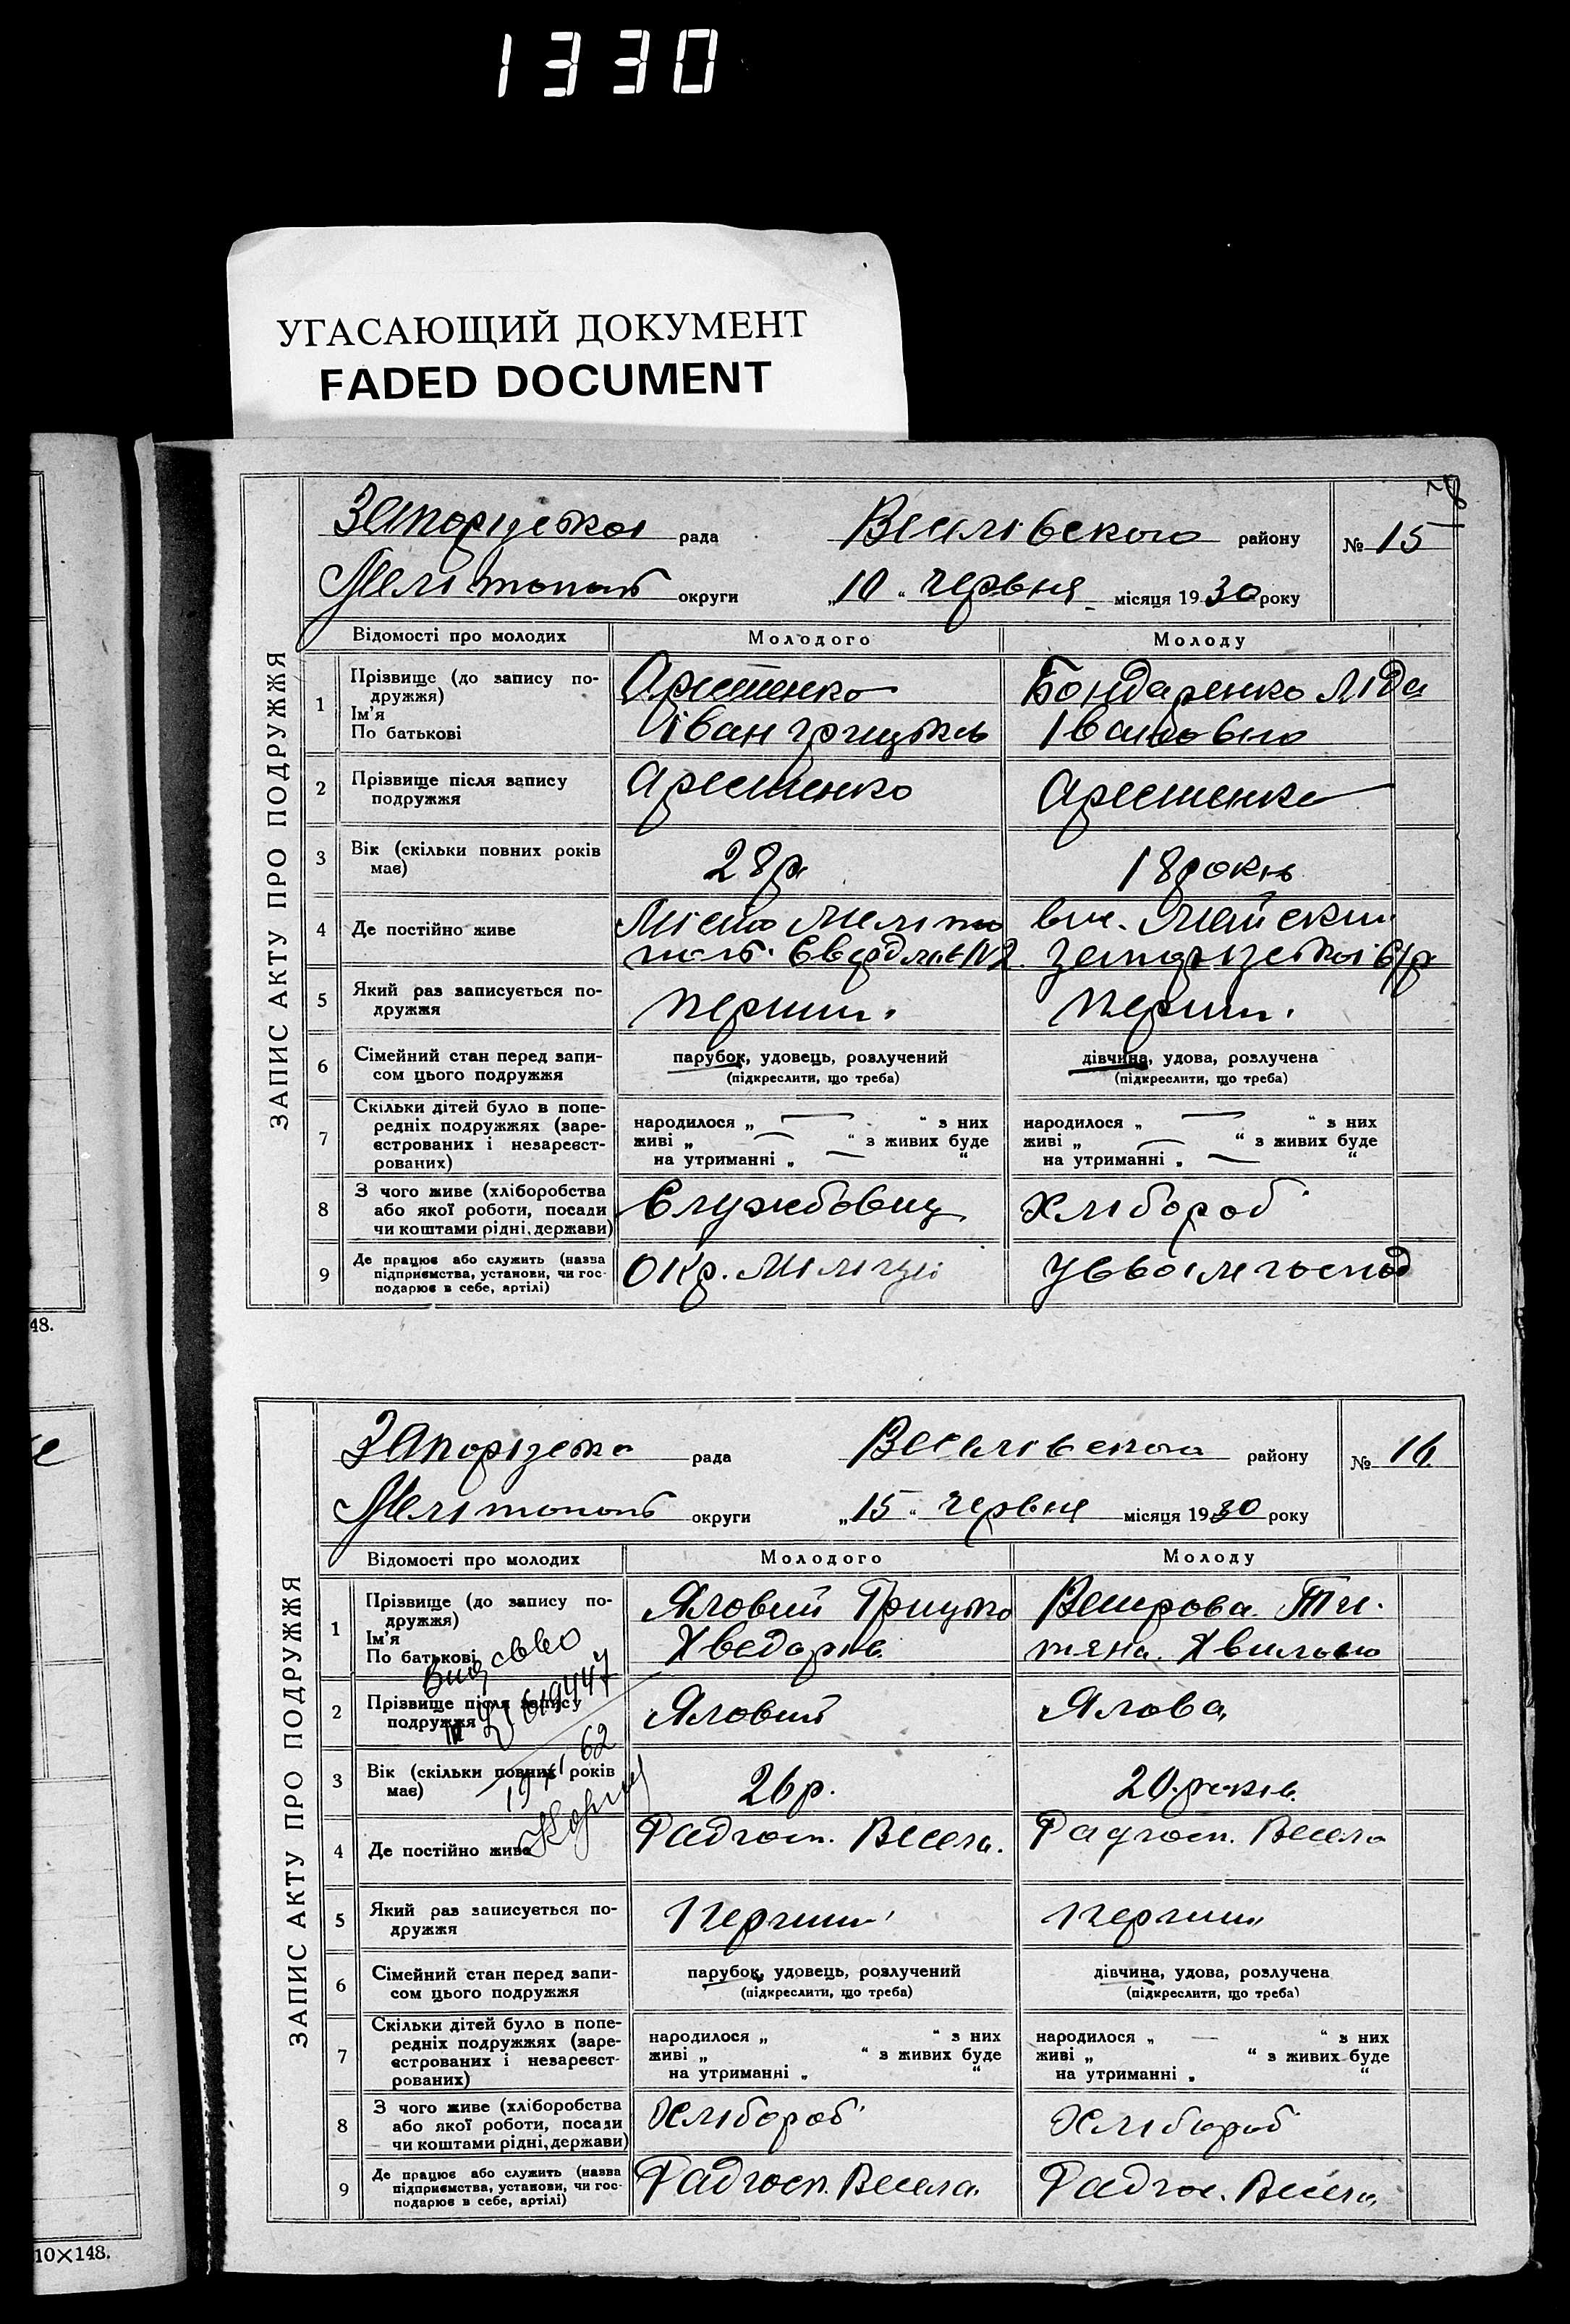 1330
УГАСАЮЩИЙ ДОКУМЕНТ
FADED DOCUMENT
48.
10×148.
ЗАПИС АКТУ ПРО ПОДРУЖЖЯ
Запорізька рада Веселівского району № 15
Мелітополь округи „10“ червня місяця 1930 року
Відомості про молодих Молодого Молоду
1 Прізвище (до запису подружжя) Ім'я По батькові
Арестенко Бондаренко Ліда
Іван Грицьків Івановно
2 Прізвище після запису подружжя Арестенко Арестенко
3 Вік (скільки повних років має) 28 р. 18 років
4 Де постійно живе
Місто Меліто
поль. №2. Запорізької с/р
5 Який раз записується подружжя перший. перший.
6 Сімейний стан перед записом цього подружжя
парубок, удовець, розлучений дівчина, удова, розлучена
(підкреслити, що треба) (підкреслити, що треба)
7 Скільки дітей було в попередніх подружжях (зареєстрованих і незареєстрованих)
народилося „ — “ з них народилося „ — “ з них
живі „ — “ з живих буде живі „ — “ з живих буде
на утриманні „ — “ на утриманні „ — “
8 З чого живе (хліборобства або якої роботи, посади чи коштами рідні, держави) Службовец Хлібороб
9 Де працює або служить (назва підприємства, установи, чи господарює в себе, артілі) Окр. Міліції У своім господ
ЗАПИС АКТУ ПРО ПОДРУЖЖЯ
Запорізька рада Веселівского району № 16
Мелітополь округи „15“ червня місяця 1930 року
Відомості про молодих Молодого Молоду
1 Прізвище (до запису подружжя) Ім'я По батькові
Яловий Грицько Ти
Хведорів. тяна.
2 Прізвище після запису подружжя Яловий Ялова
3 Вік (скільки повних років має) 26 р. 20 років.
4 Де постійно живе Радгосп. Весела. Радгосп. Весела
5 Який раз записується подружжя Перший Перший
6 Сімейний стан перед записом цього подружжя
парубок, удовець, розлучений дівчина, удова, розлучена
(підкреслити, що треба) (підкреслити, що треба)
7 Скільки дітей було в попередніх подружжях (зареєстрованих і незареєстрованих)
народилося „ “ з них народилося „ — “ з них
живі „ “ з живих буде живі „ “ з живих буде
на утриманні „ “ на утриманні „ “
8 З чого живе (хліборобства або якої роботи, посади чи коштами рідні, держави) Хлібороб Хлібороб
9 Де працює або служить (назва підприємства, установи, чи господарює в себе, артілі) Радгосп. Весела. Радгос. Весела